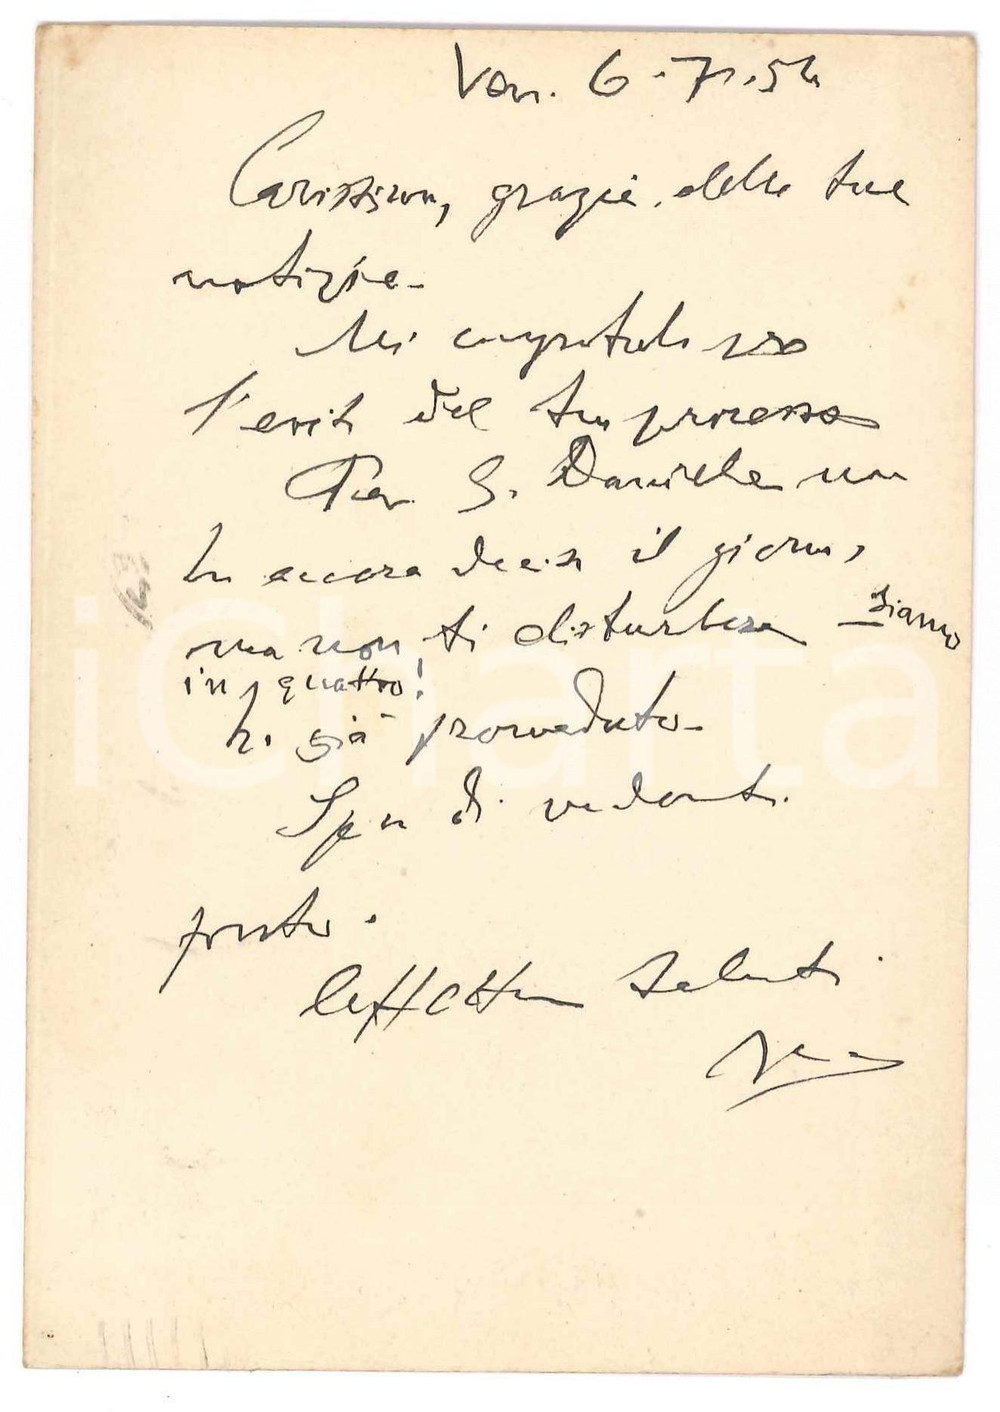 Ven. 6.7.54
Carissimo, grazie delle tue
notizie.
Mi congratulo per
l'esito del tuo processo
Per S. Daniele non
ho ancora deciso il giorno,
ma non ti disturberò siamo
in quattro!
ho già provveduto.
Spero di vederti
presto.
affettuosi saluti
iCharta